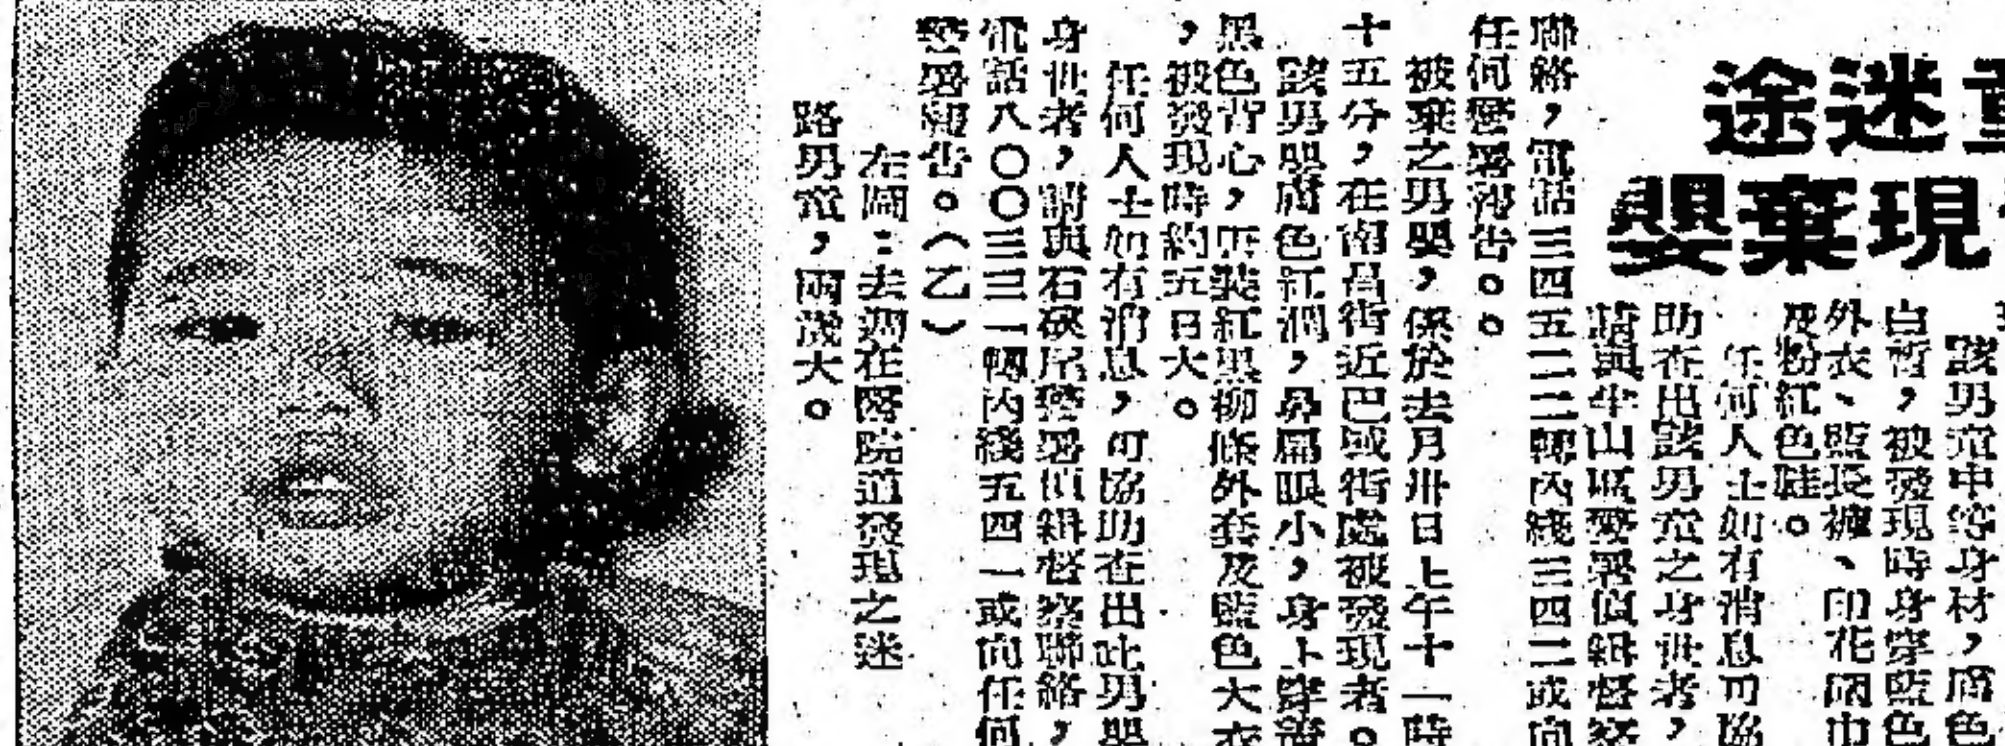 迷途
現棄嬰
該男童中等身材，膚色
白晳，被發現時身穿藍色
外衣、藍長褲、印花兩巾
及粉紅色鞋。
任何人士如有消息可協
助查出該男童之身世者，
請與牛山區警署偵緝督察
聯絡，電話三四五二二二轉內綫三四二或向
任何警署報告。。
被棄之男嬰，係於去月卅日上午十一時
十五分，在南昌街近巴域街處被發現者。
該男嬰膚色紅潤，鼻扁眼小，身上穿
黑色背心，紅黑柳條外套及藍色大衣
，被發現時約五日大。
任何人士如有消息，可協助查出此男嬰
身世者，請與石硤尾警署偵緝督察聯絡，
電話八〇〇三三一轉內綫五四一或向任何
警署報告。（乙）
左圖：去週在醫院道發現之迷
路男童，兩歲大。